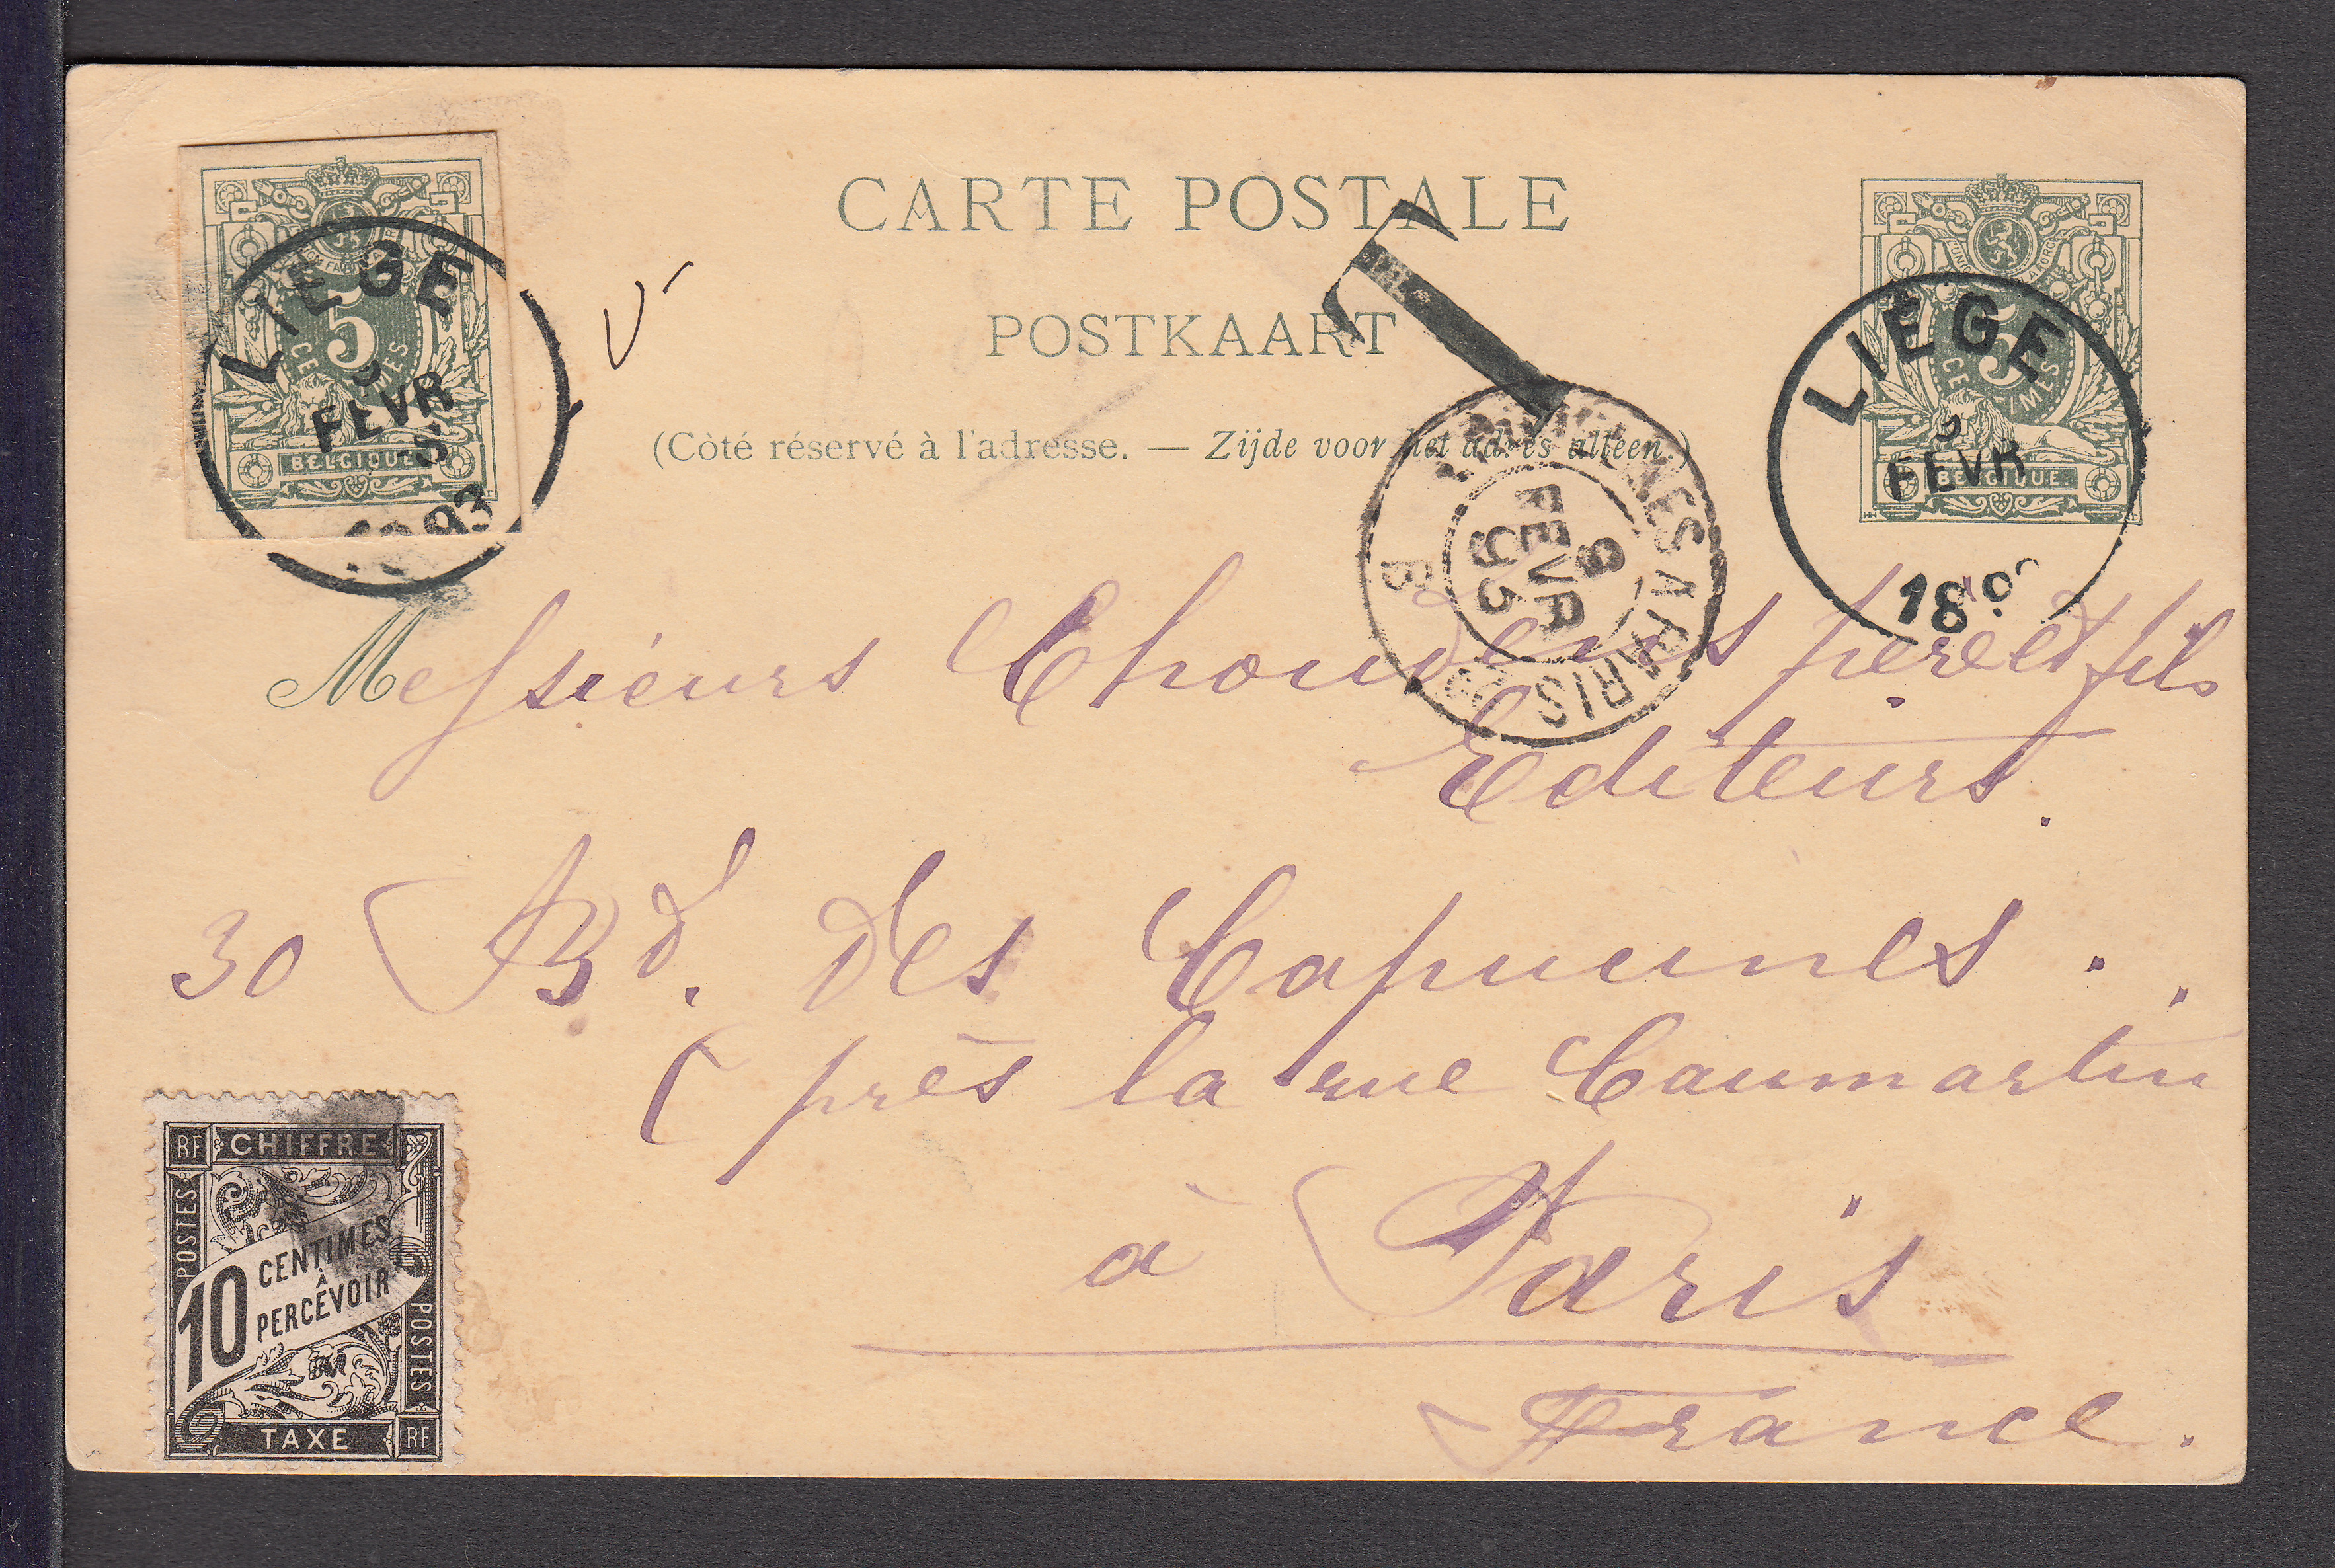 CARTE POSTALE
POSTKAART
(Côté réservé à l'adresse. — Zijde voor het adres alleen.)
5
CENTIMES
BELGIQUE
LIÈGE
FEVR
93
5
CENTIMES
BELGIQUE
LIÈGE
FEVR
189
T
A PARIS
FEVR
93
Messieurs Choudens père et fils
Editeurs.
30 Bd. des Capucines.
(près la rue Caumartin
à Paris
France.
RF CHIFFRE
POSTES
10 CENTIMES
À
PERCEVOIR
POSTES
TAXE RF